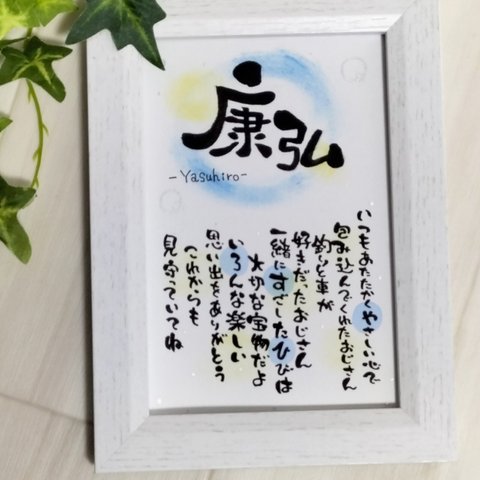 康弘
-Yasuhiro-
いつもあたたかくやさしい心で
包み込んでくれたおじさん
釣りと車が
好きだったおじさん
一緒にすごしたひびは
大切な宝物だよ
いろんな楽しい
思い出をありがとう
これからも
見守っていてね